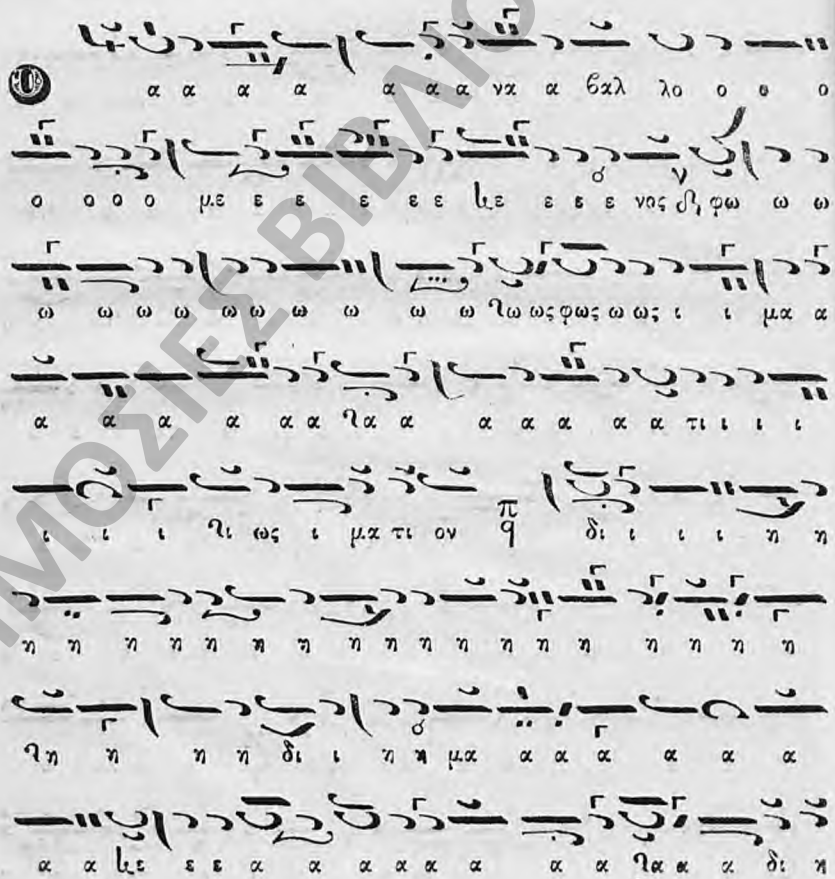 α α α α α α α να α βαλ λο ο ο ο
ο ο ο ο με ε ε ε ε ε κε ε ε ε νος φω ω ω
ω ω ω ω ω ω ω ω ω ω τω ως φως ω ως ι ι μα α
α α α α α α τα α α α α α α τι ι ι ι
ι ι ι τι ως ι μα τι ον π q δι ι ι ι η η
η η η η η η η η η η η η η η η η η η
τη η η η δι ι η η μα α α α α α α
α α κε ε ε α α α α α α α α τα α α δι η
ΗΜΟΣΙΕΣ ΒΙΒΛΙΟ